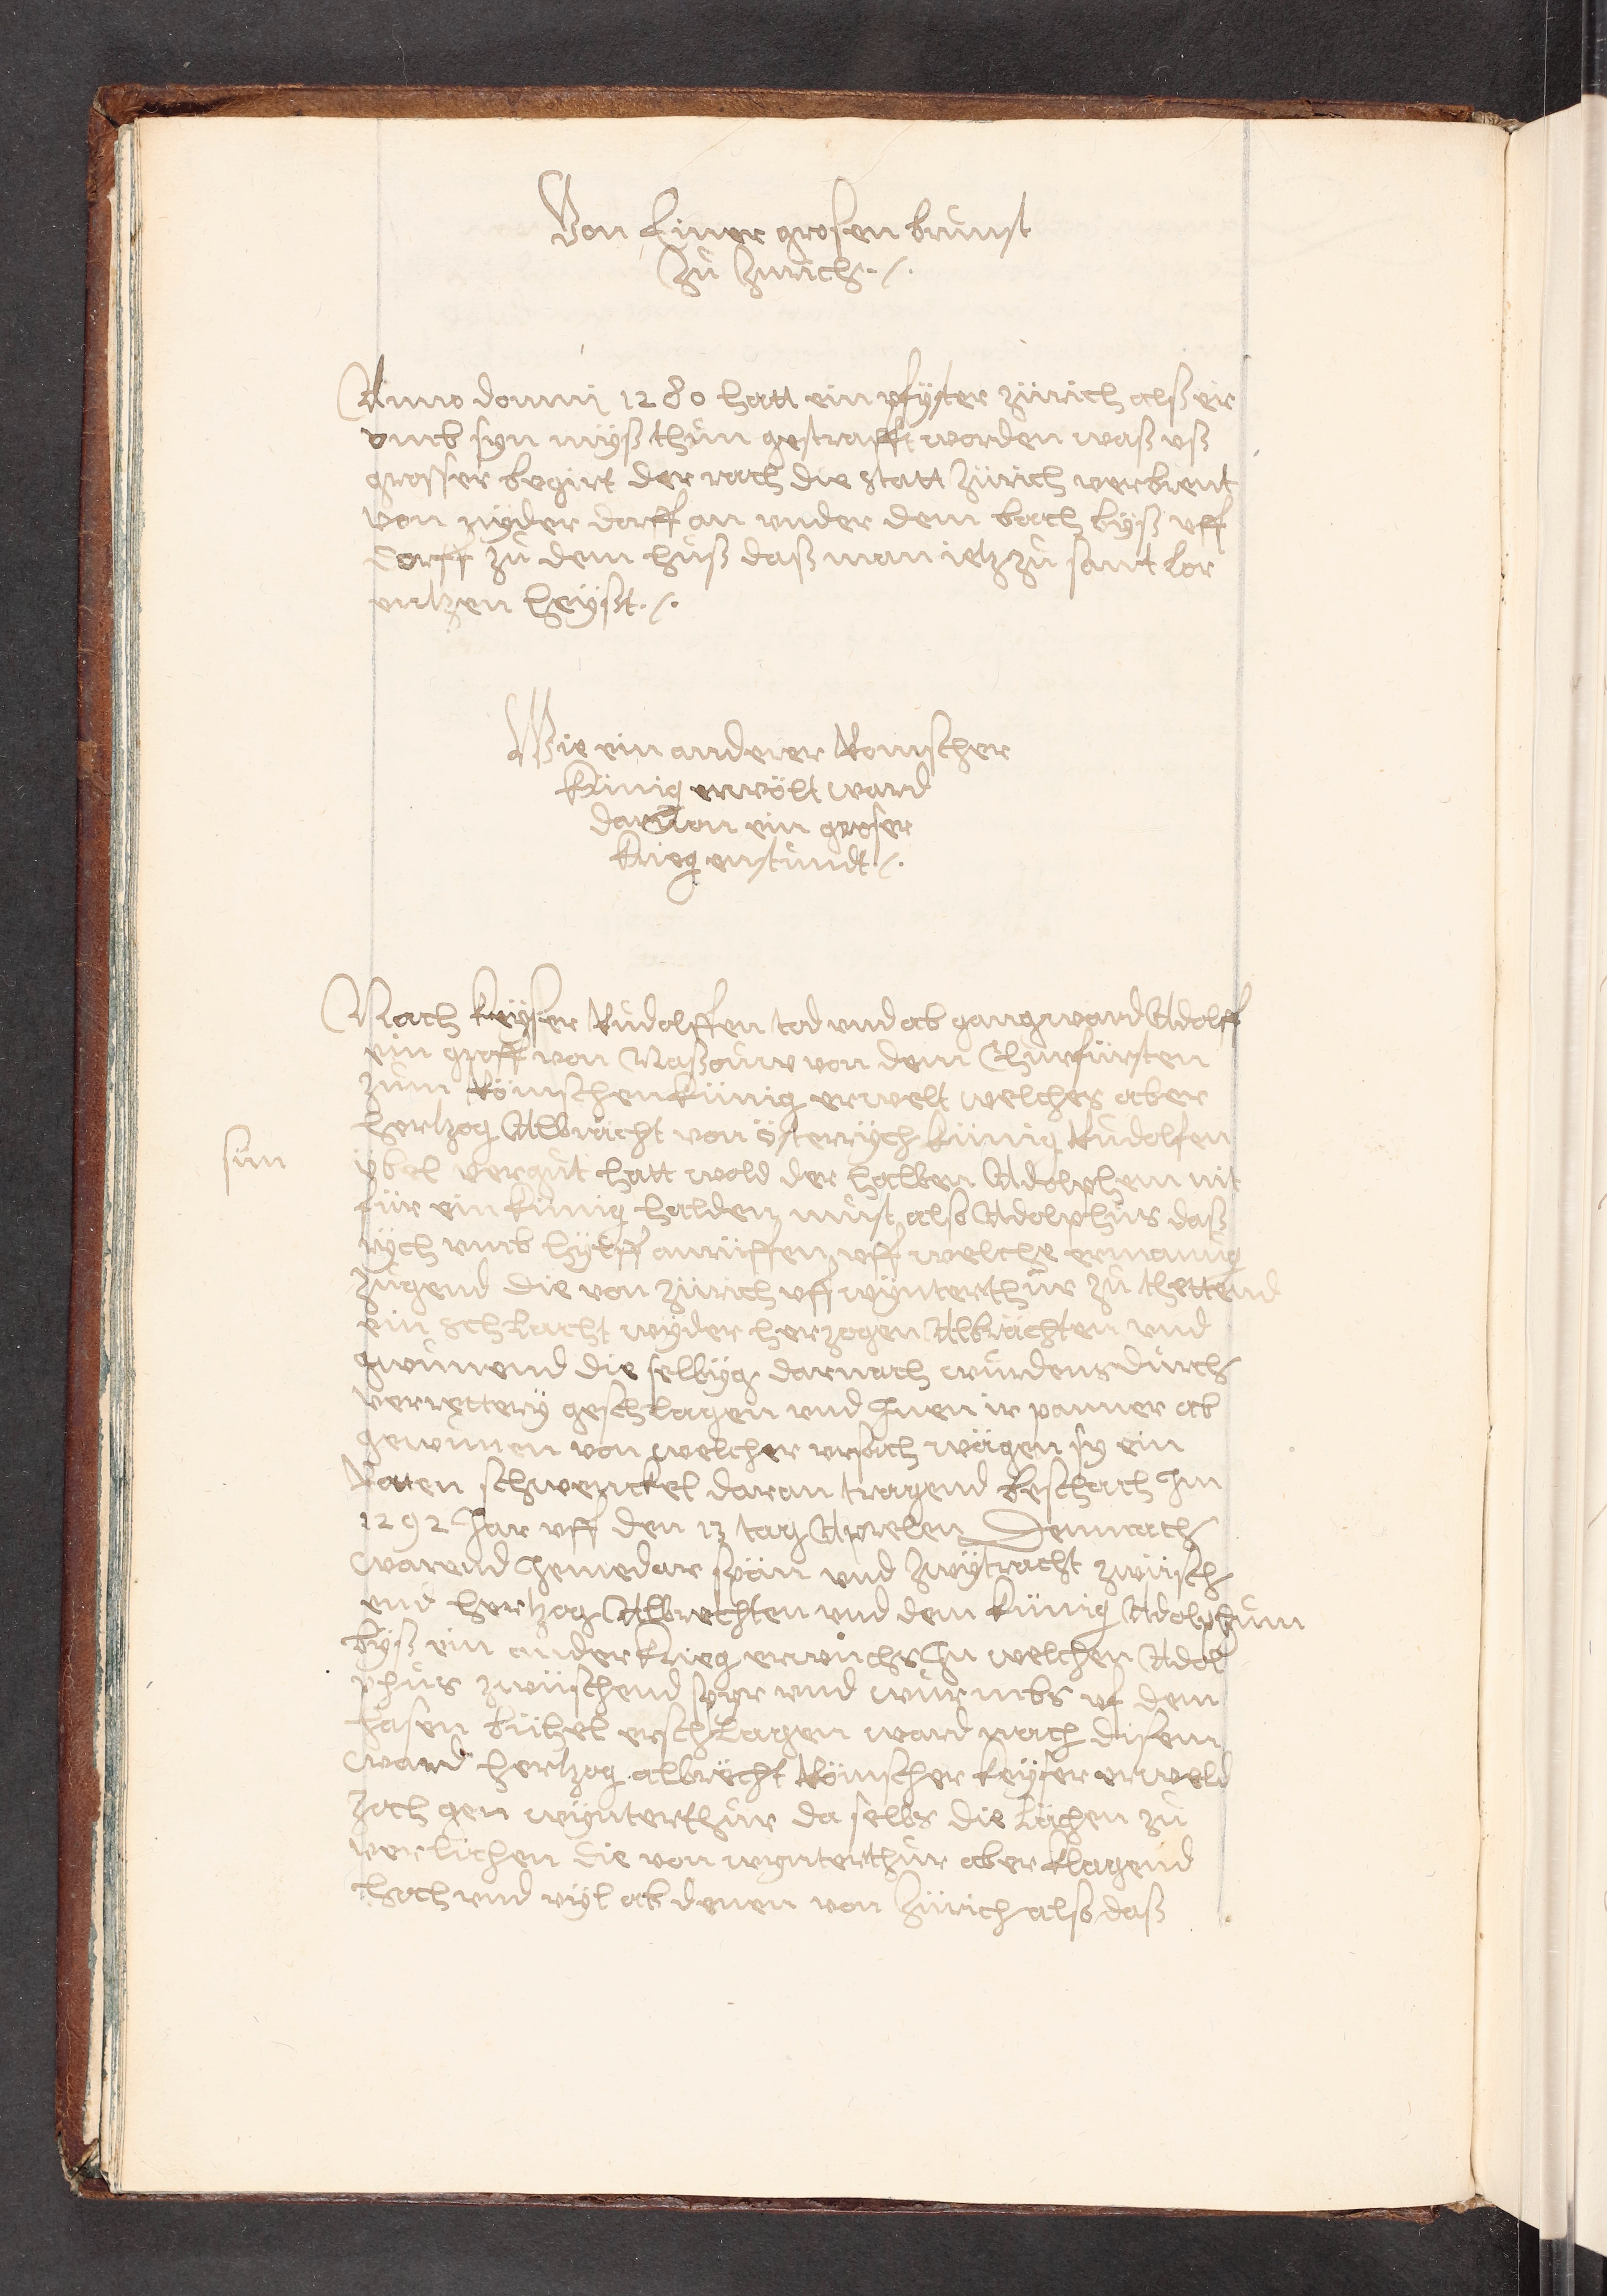 Von Einer grosen brunst
Zů Zürich ·/·
Anno domini 1280 hatt ein pfyster zürich alß eir
vmb syn myß thůn gestrafft worden waß vß
grosser begirt der rach die statt zürich verbrent
von nyder dorff an vnder dem bach byß vff
dorff zů dem huß daß man ietz zů sant lor
entzen heyßt ·/·
Wie ein anderer Romscher
Künig erwölt ward
daruon ein groser
Krieg enstůndt ·/·
Nach Keyser Růdolffen tod vnd ab gang ward Adolff
ein graff von Naßouw von dem Churfürsten
zum Römschen künig erwelt welches aber
hertzog Albrächt von österrych künig Růdolfen
sün
ybel vergůt hatt wold der halben Adolphem nit
für ein künig halden můst also Adolphus daß
rych vmb hylff anrüffen vff welche ermanũg
zugend die von zürich vff wynterthur zů thettend
ein schlacht wyder herzogen Albrächten vnd
gwunend die selbyg darnach wurdens durch
verrettery geschlagen vnd Jnen ir panner ab
gewunen von welcher vrsach wägen sy ein
Roten schwenckel daran tragend beschach Jm
1292 Jar vff den 13 tag Aprelen Demnach
warend Jemedar spän vnd zwytracht zwüsch
end hertzog Albrechten vnd dem künig Adolphum
byß ein ander krieg erwůchs Jn welchen Adol
phus zwüschend spyr vnd wurmbs vf dem
hasen bühel erschlagen ward nach disem
ward hertzog albrecht Römscher keyser erweld
zoch gen wynterthur da selbs die lächen zů
verlichen die von wynterthur aber klagend
hoch vnd vyl ab denen von Zürich also daß